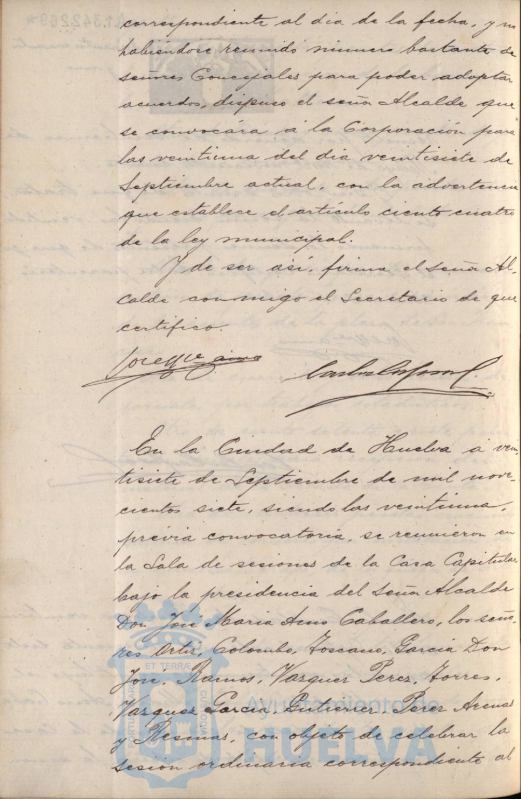 correspondiente al dia de la fecha, y no
habiéndose reunido número bastante de
señores Concejales para poder adoptar
acuerdos, dispuso el señor Alcalde que
se convocára á la Corporación para
las veintiuna del dia veintisiete de
Septiembre actual, con la advertencia
que establece el artículo ciento cuatro
de la ley municipal.
Y de ser así, firma el señor Al-
calde conmigo el Secretario de que
certifico.
En la Ciudad de Huelva á vein-
tisiete de Septiembre de mil nove-
cientos siete, siendo las veintiuna,
prévia convocatoria, se reunieron en
la Sala de sesiones de la Casa Capitular
bajo la presidencia del Señor Alcalde
Don José Maria Amo Caballero, los seño-
res Ortiz, Colombo, Toscano, Garcia Don
José, Ramos, Vazquez Perez, Torres,
Vazquez Garcia, Gutierrez, Perez Arenas
y Mesmas, con objeto de celebrar la
sesión ordinaria correspondiente al
ET TERRÆ
Ayuntamiento de
HUELVA